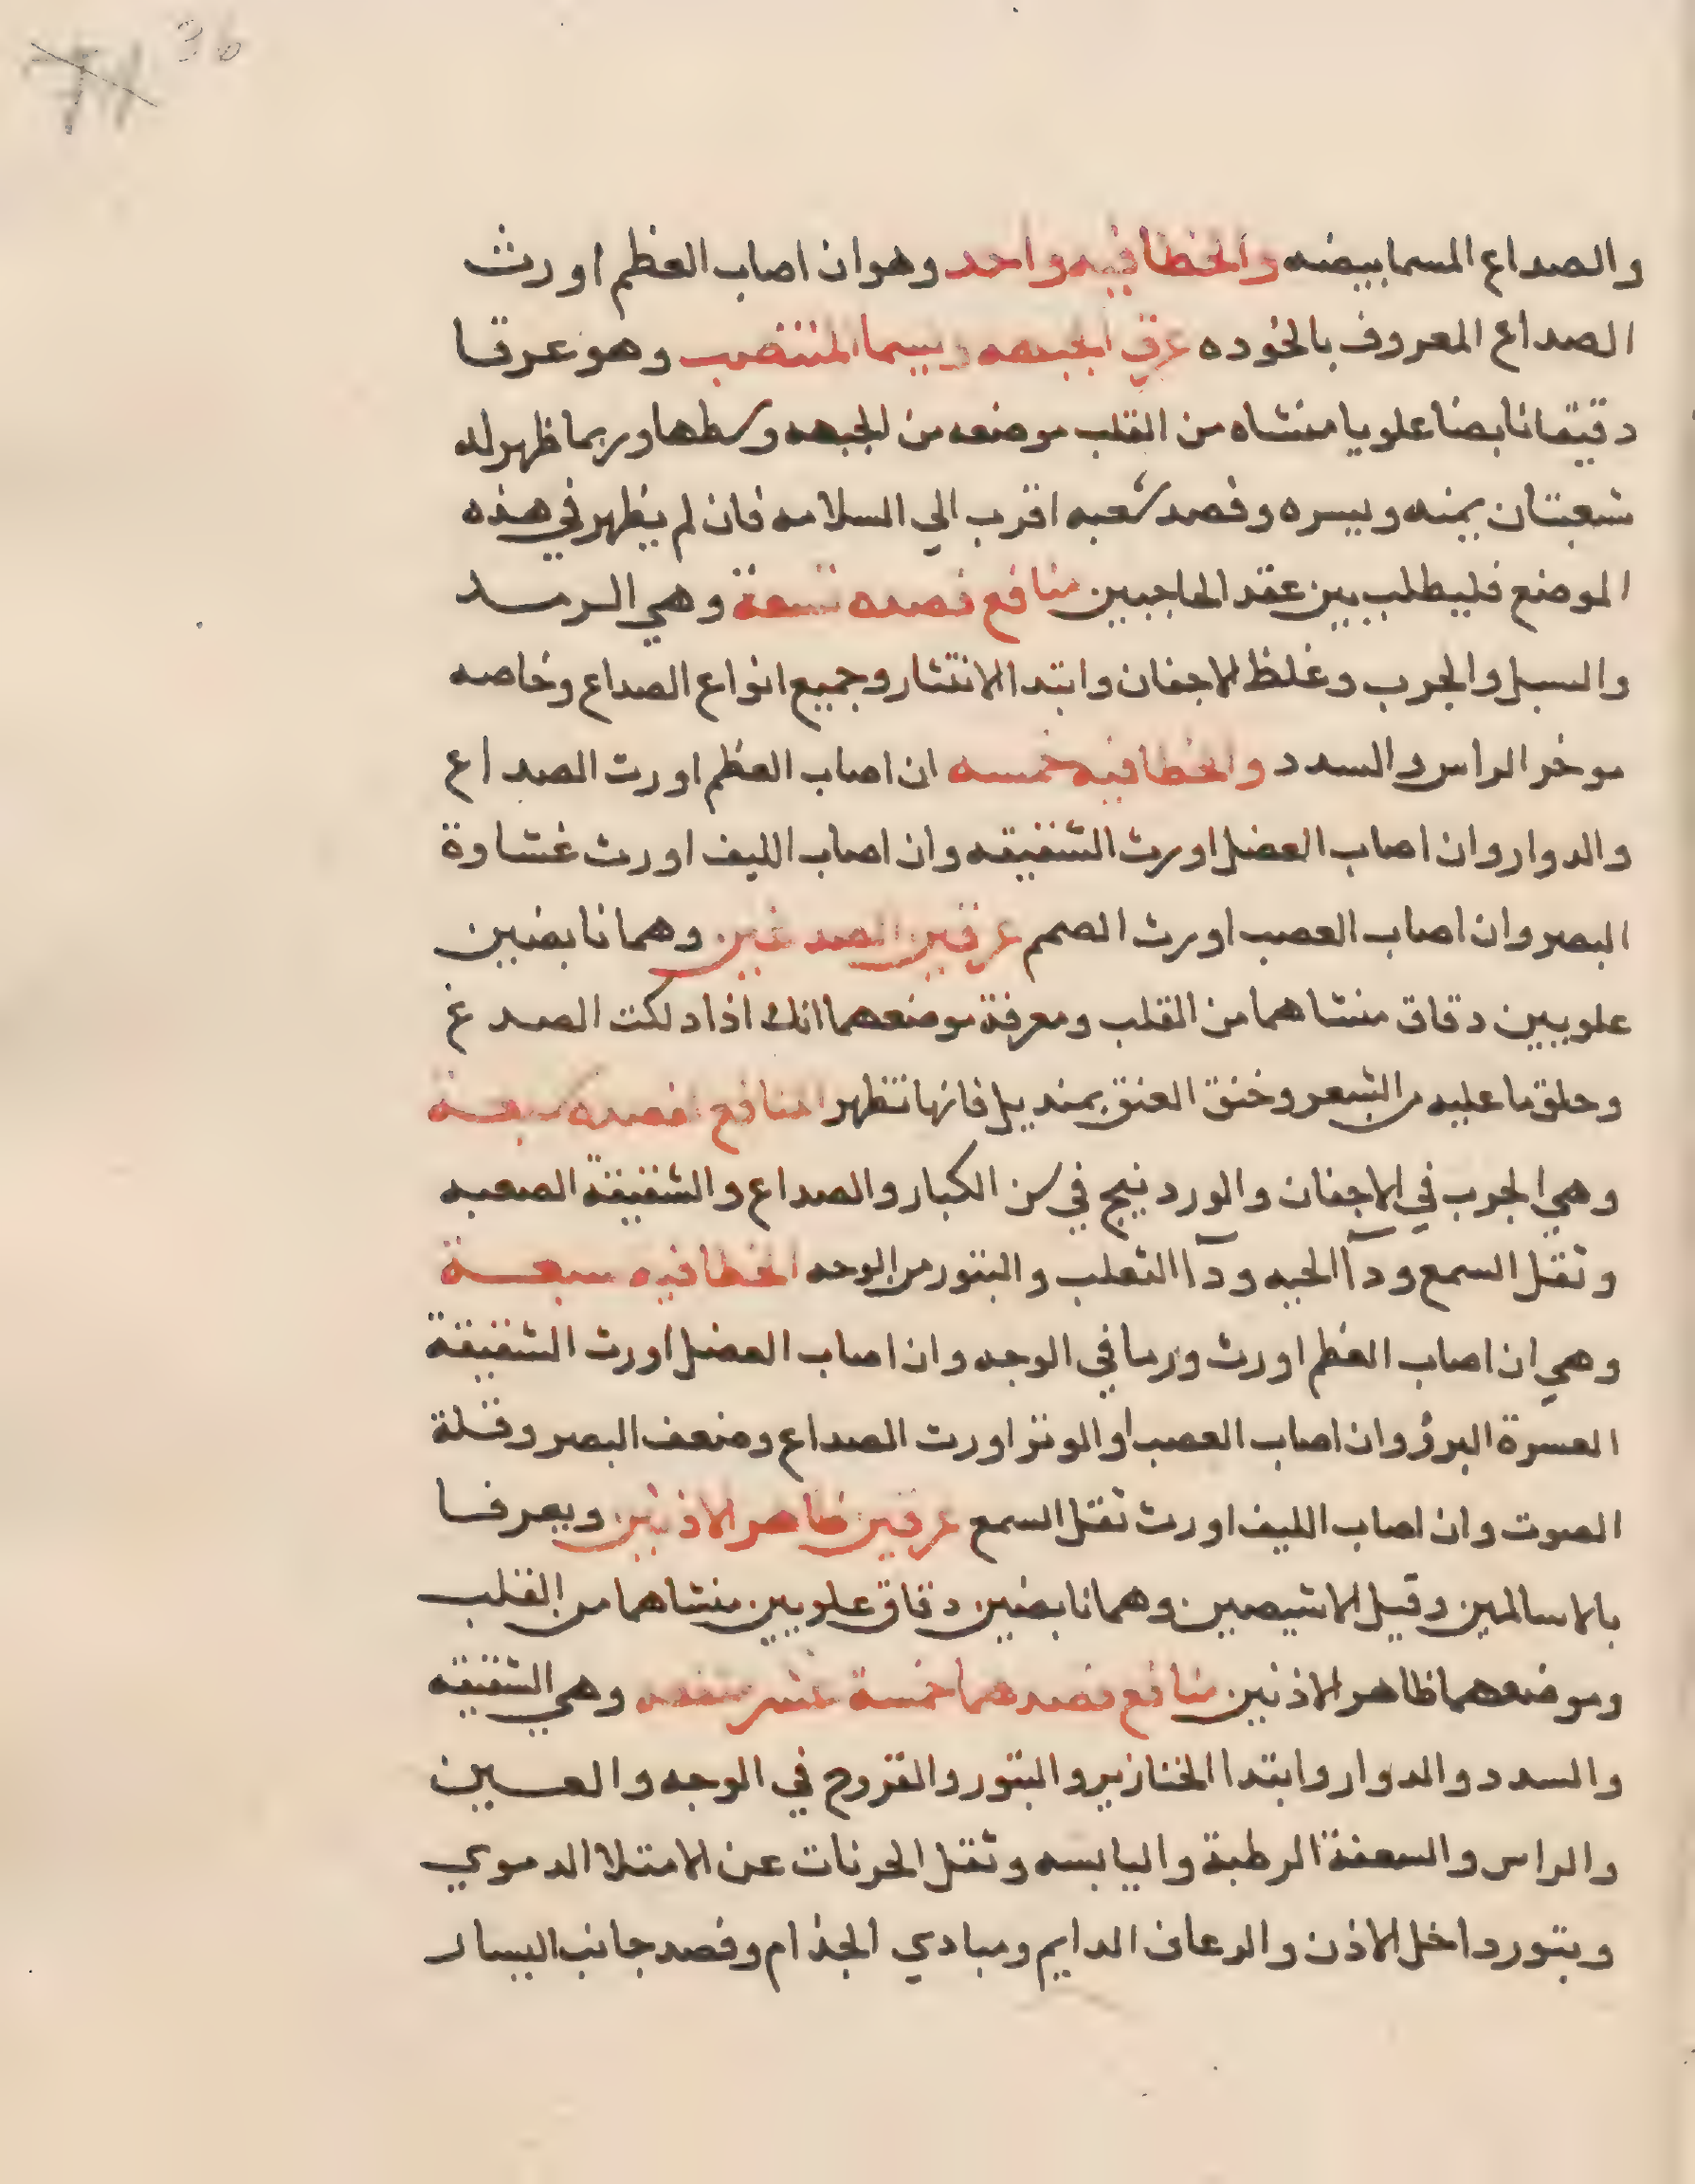 36
والصداع المسما بيضه والخطا فيه واحد وهو ان اصاب العظم اورث
الصداع المعروف بالخوده عرق الجبهه ويسما المنتصب وهو عرقا
دقيقا نابضا علويا منشاه من القلب موضعه من الجبهه وسطها وربما ظهر له
شعبتان يمنه ويسره وفصد شعبه اقرب الي السلامه فان لم يظهر في هذه
الموضع فليطلب بين عقد الحاجبين منافع فصده تسعة وهي الرمد
والسبل والجرب وغلظ الاجفان وابتدا الانتشار وجميع انواع الصداع وخاصه
موخر الراس والسدد والخطا فيه خمسه ان اصاب العظم اورث الصداع
والدوار وان اصاب العضل اورث الشقيقه وان اصاب الليف اورث غشاوة
البصر وان اصاب العصب اورث الصمم عرقين الصدغين وهما نابضين
علويين دقاق منشاهما من القلب ومعرفة موضعهما انك اذا دلكت الصدغ
وحلق ما عليه من الشعر وخنق العنق بمنديل فانها تظهر المنافع لفصده سبعة
وهي الجرب في الاجفان والوردينج في سن الكبار والصداع والشقيقة الصعبه
وثقل السمع ودآ الحيه ودآ الثعلب والبثور من الوجه الخطا فيه سبعة
وهي ان اصاب العظم اورث ورما في الوجه وان اصاب العضل اورث الشقيقة
العسرة البرؤ وان اصاب العصب او الوتر اورث الصداع وضعف البصر وقلة
الصوت وان اصاب الليف اورث ثقل السمع عرقين ظاهر الاذنين ويعرفا
بالاسالمين وقيل الاشيصين وهما نابضين دقاق علويين منشاهما من القلب
وموضعهما ظاهر الاذنين منافع فصدهما خمسة عشر منفعه وهي الشقيقه
والسدد والدوار وابتدا الخنازير والبثور والقروح في الوجه والعين
والراس والسعفة الرطبة واليابسه وثقل الحركات عن الامتلا الدموي
وبثور داخل الاذن والرعاف الدايم ومبادي الجذام وفصد جانب اليسار